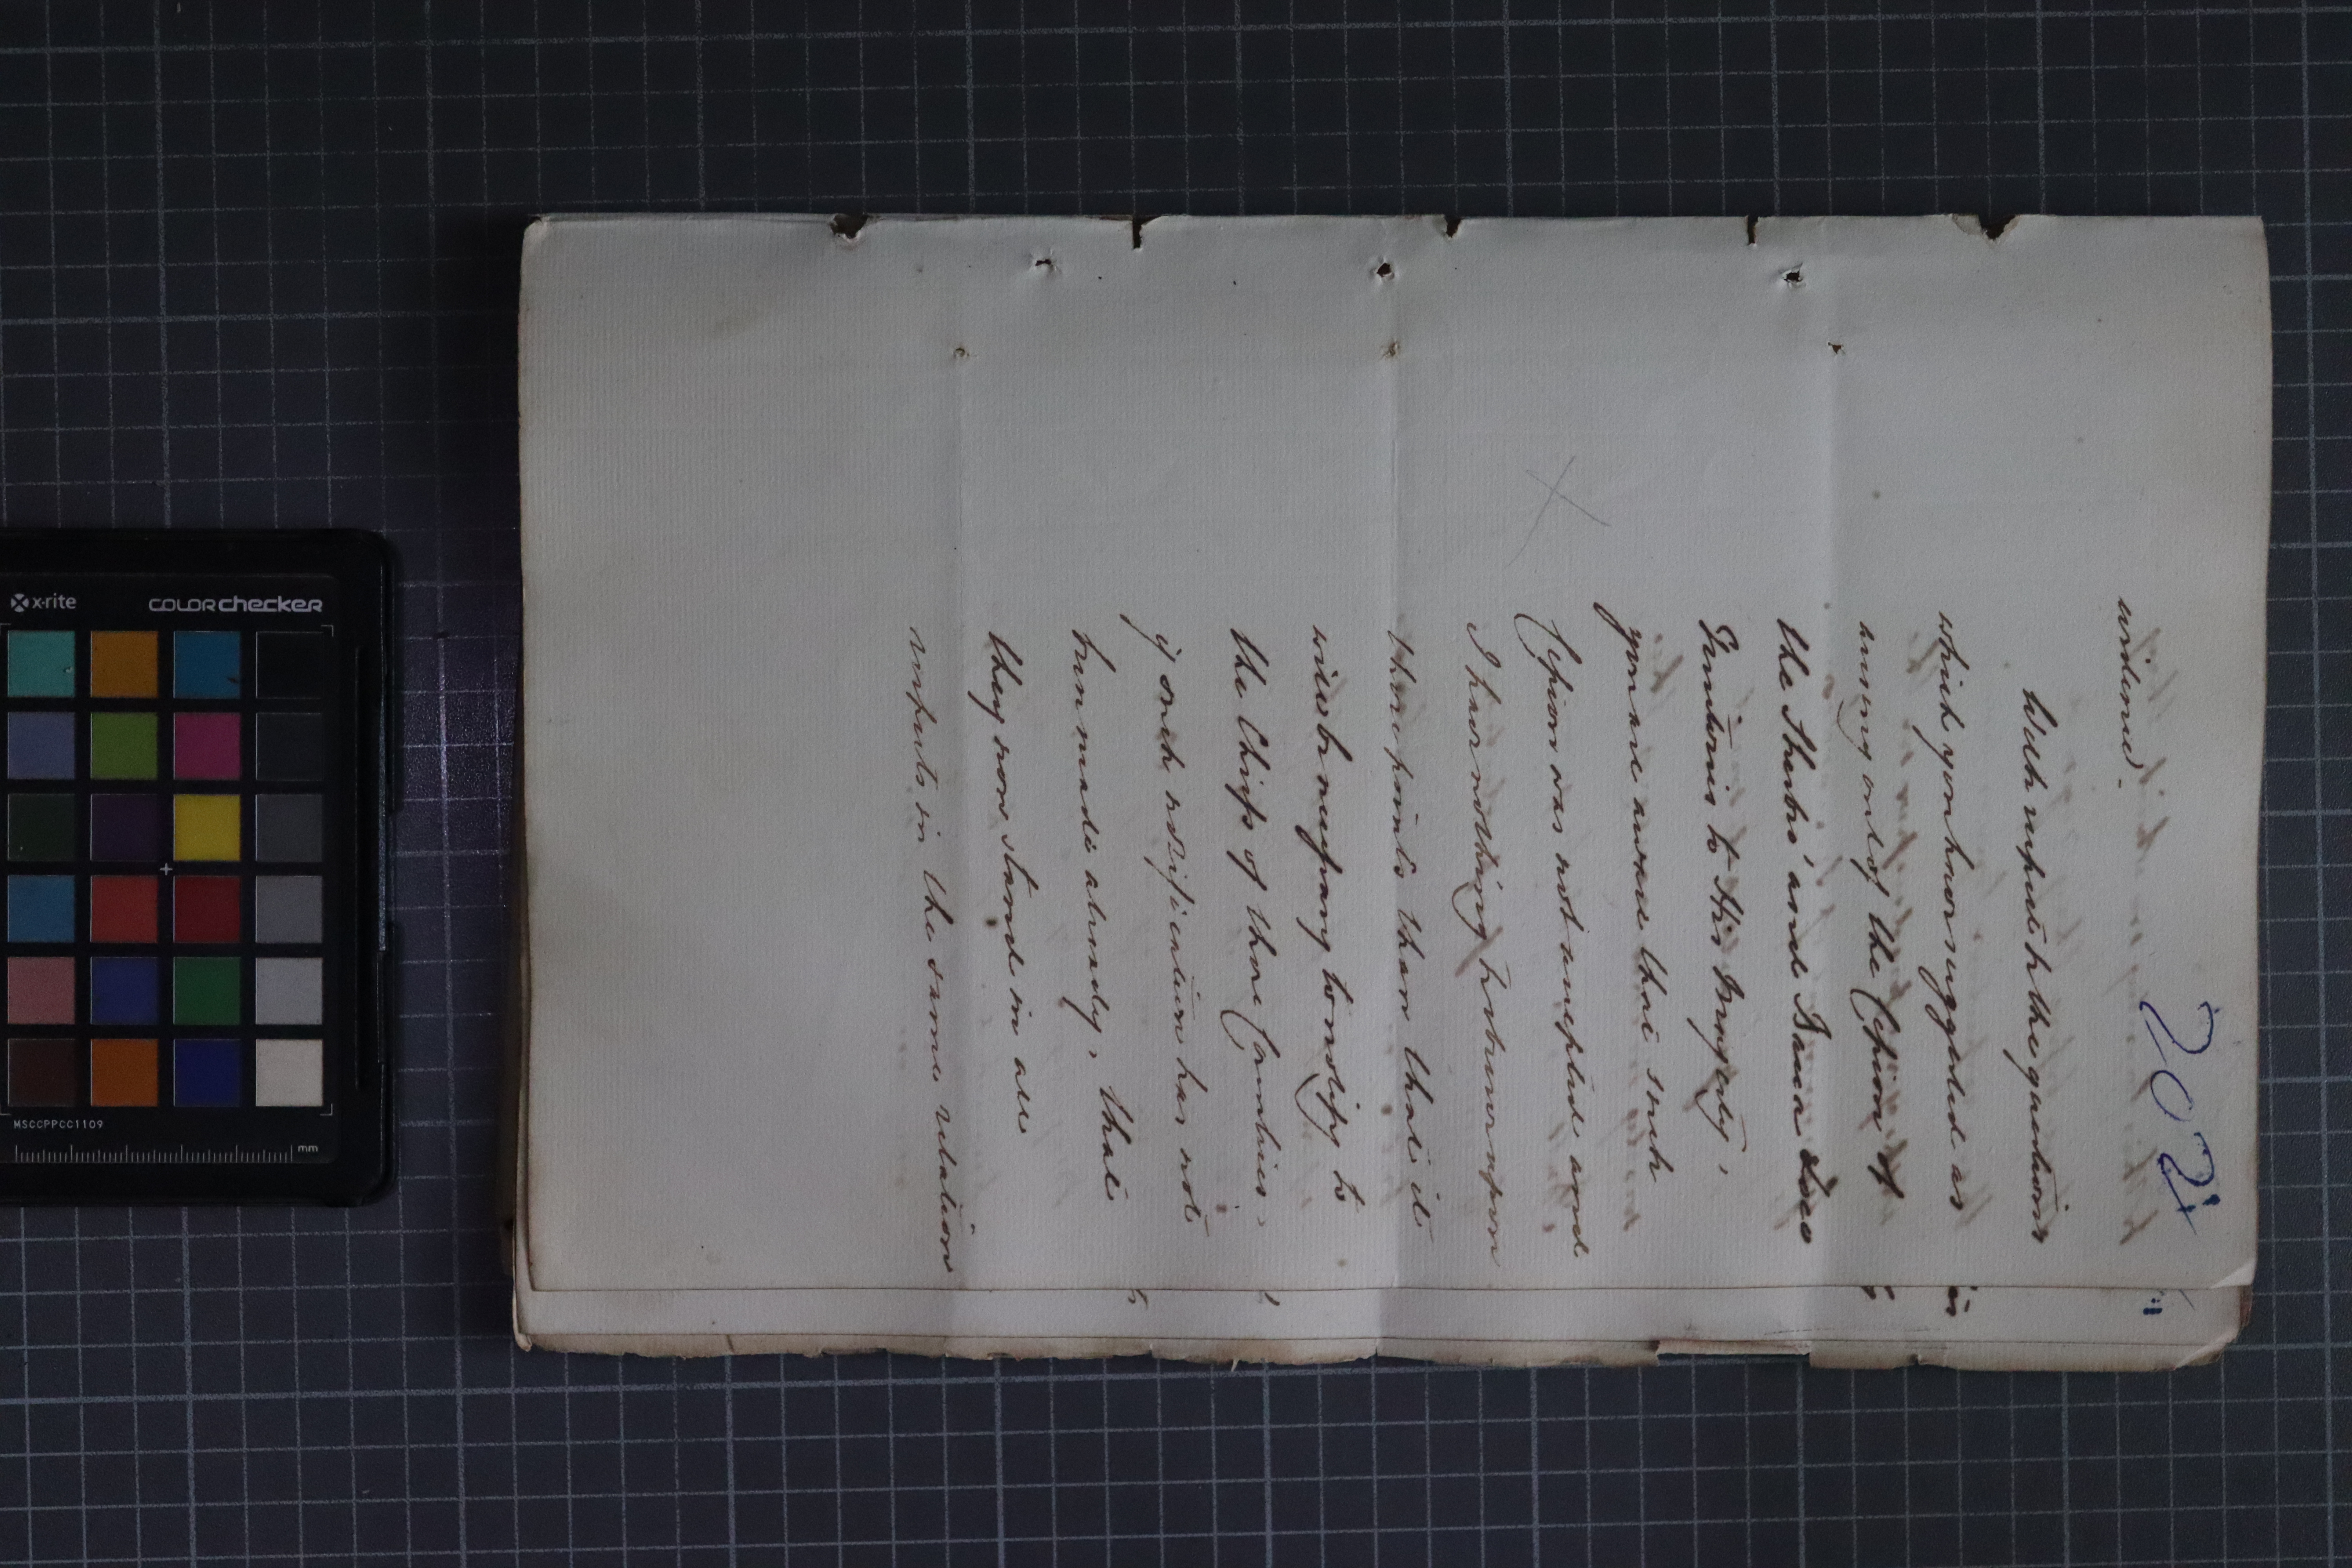 202
evidence.
With respect to the questions
which you have suggested as
arising out of the Cession of
the Sherbro' and Bacca Loco
Territories to His Majesty,
you are aware that such
Cession was not accepted and
I have nothing to observe upon
those points than that it
will be necessary to notify to
the Chiefs of those Countries,
if such notification has not
been made already, that
they now stand in all
respects in the same relation
x-rite
colorchecker
MSCCPPCC1109
mm